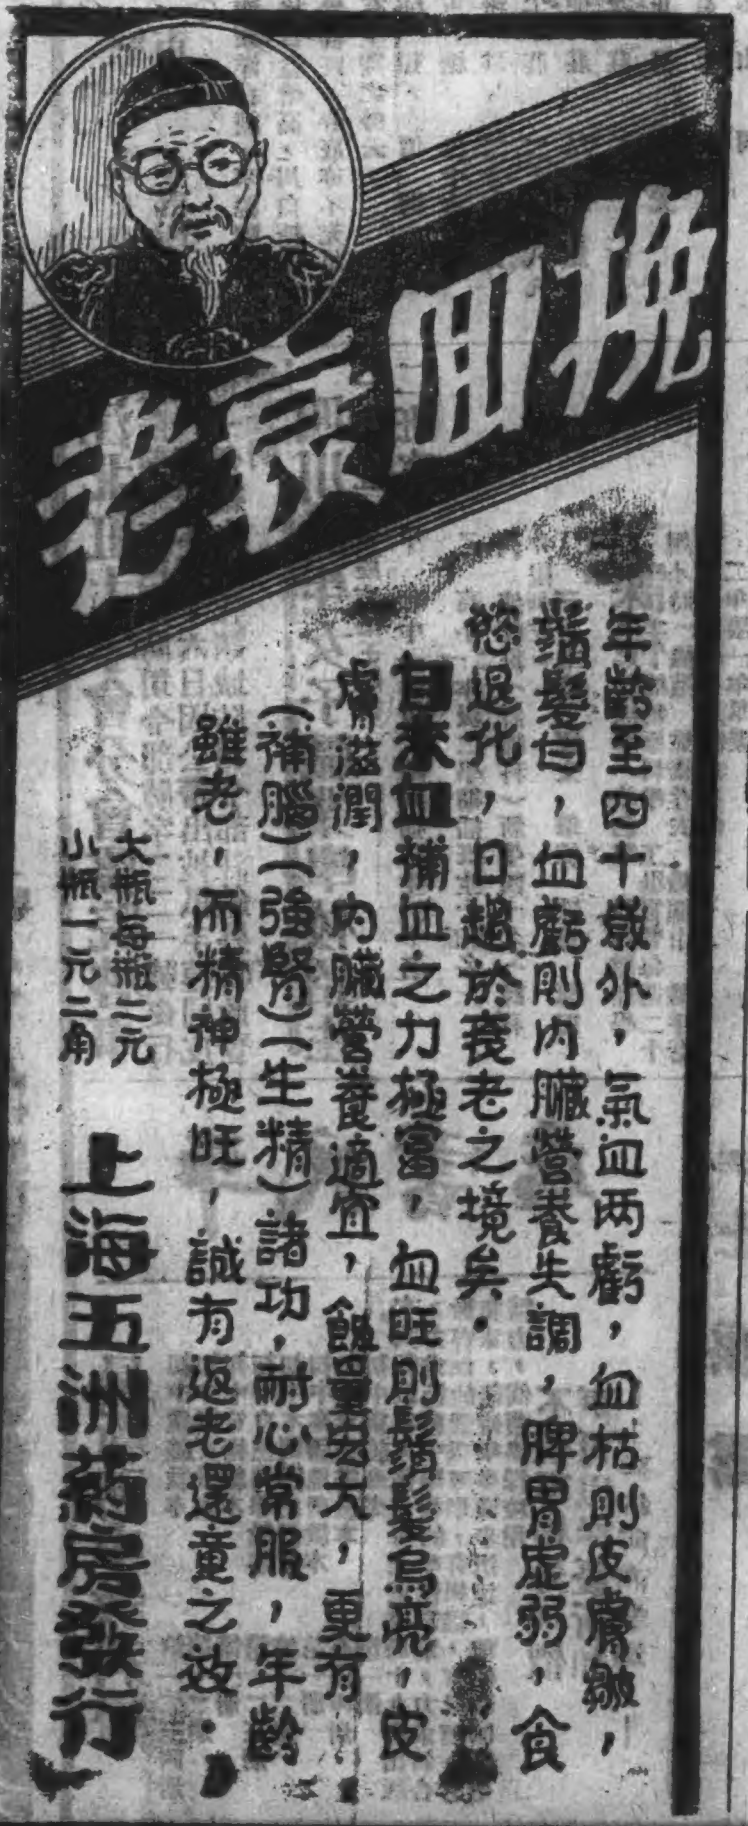 挽回衰老
年齡至四十歲外，氣血两虧，血枯則皮膚皺，
鬚髮白，血虧則内臟營養失調，脾胃虛弱，食
慾退化，日趨於衰老之境矣．
自來血補血之力極富，血旺則鬚髮烏亮，皮
膚滋潤，内臟營養適宜，飯量宏大，更有
（補腦）（強腎）（生精）諸功，耐心常服，年齡
雖老，而精神極旺，誠有返老還童之效．
大瓶每瓶二元
小瓶一元二角
上海五洲葯房發行